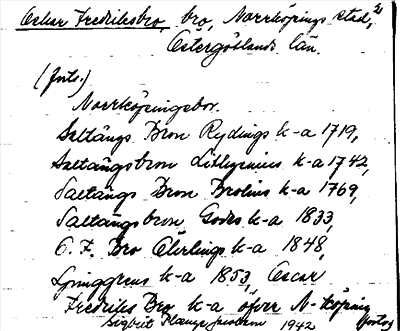 Oskar Fredriksbro, bro, Norrköpings stad, 2)
Östergötlands län.
(Forts.)
Norrköpingsbor.
Saltängs Bron Rydings k-a 1719,
Saltängsbron Lithzenius k-a 1742,
Saltängs Bron Brolins k-a 1769,
Saltängsbron Godes k-a 1833,
O. F. Bro Ekerlings k-a 1848,
Ljunggrens k-a 1853, Oscar
Fredriks Bro k-a öfver N-köping
Sigbrit Plange Janson 1942 (forts)